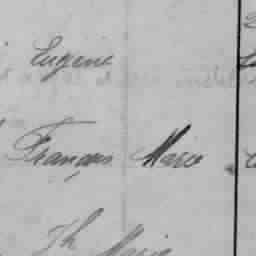 Eugène
François Marie
Th Marie